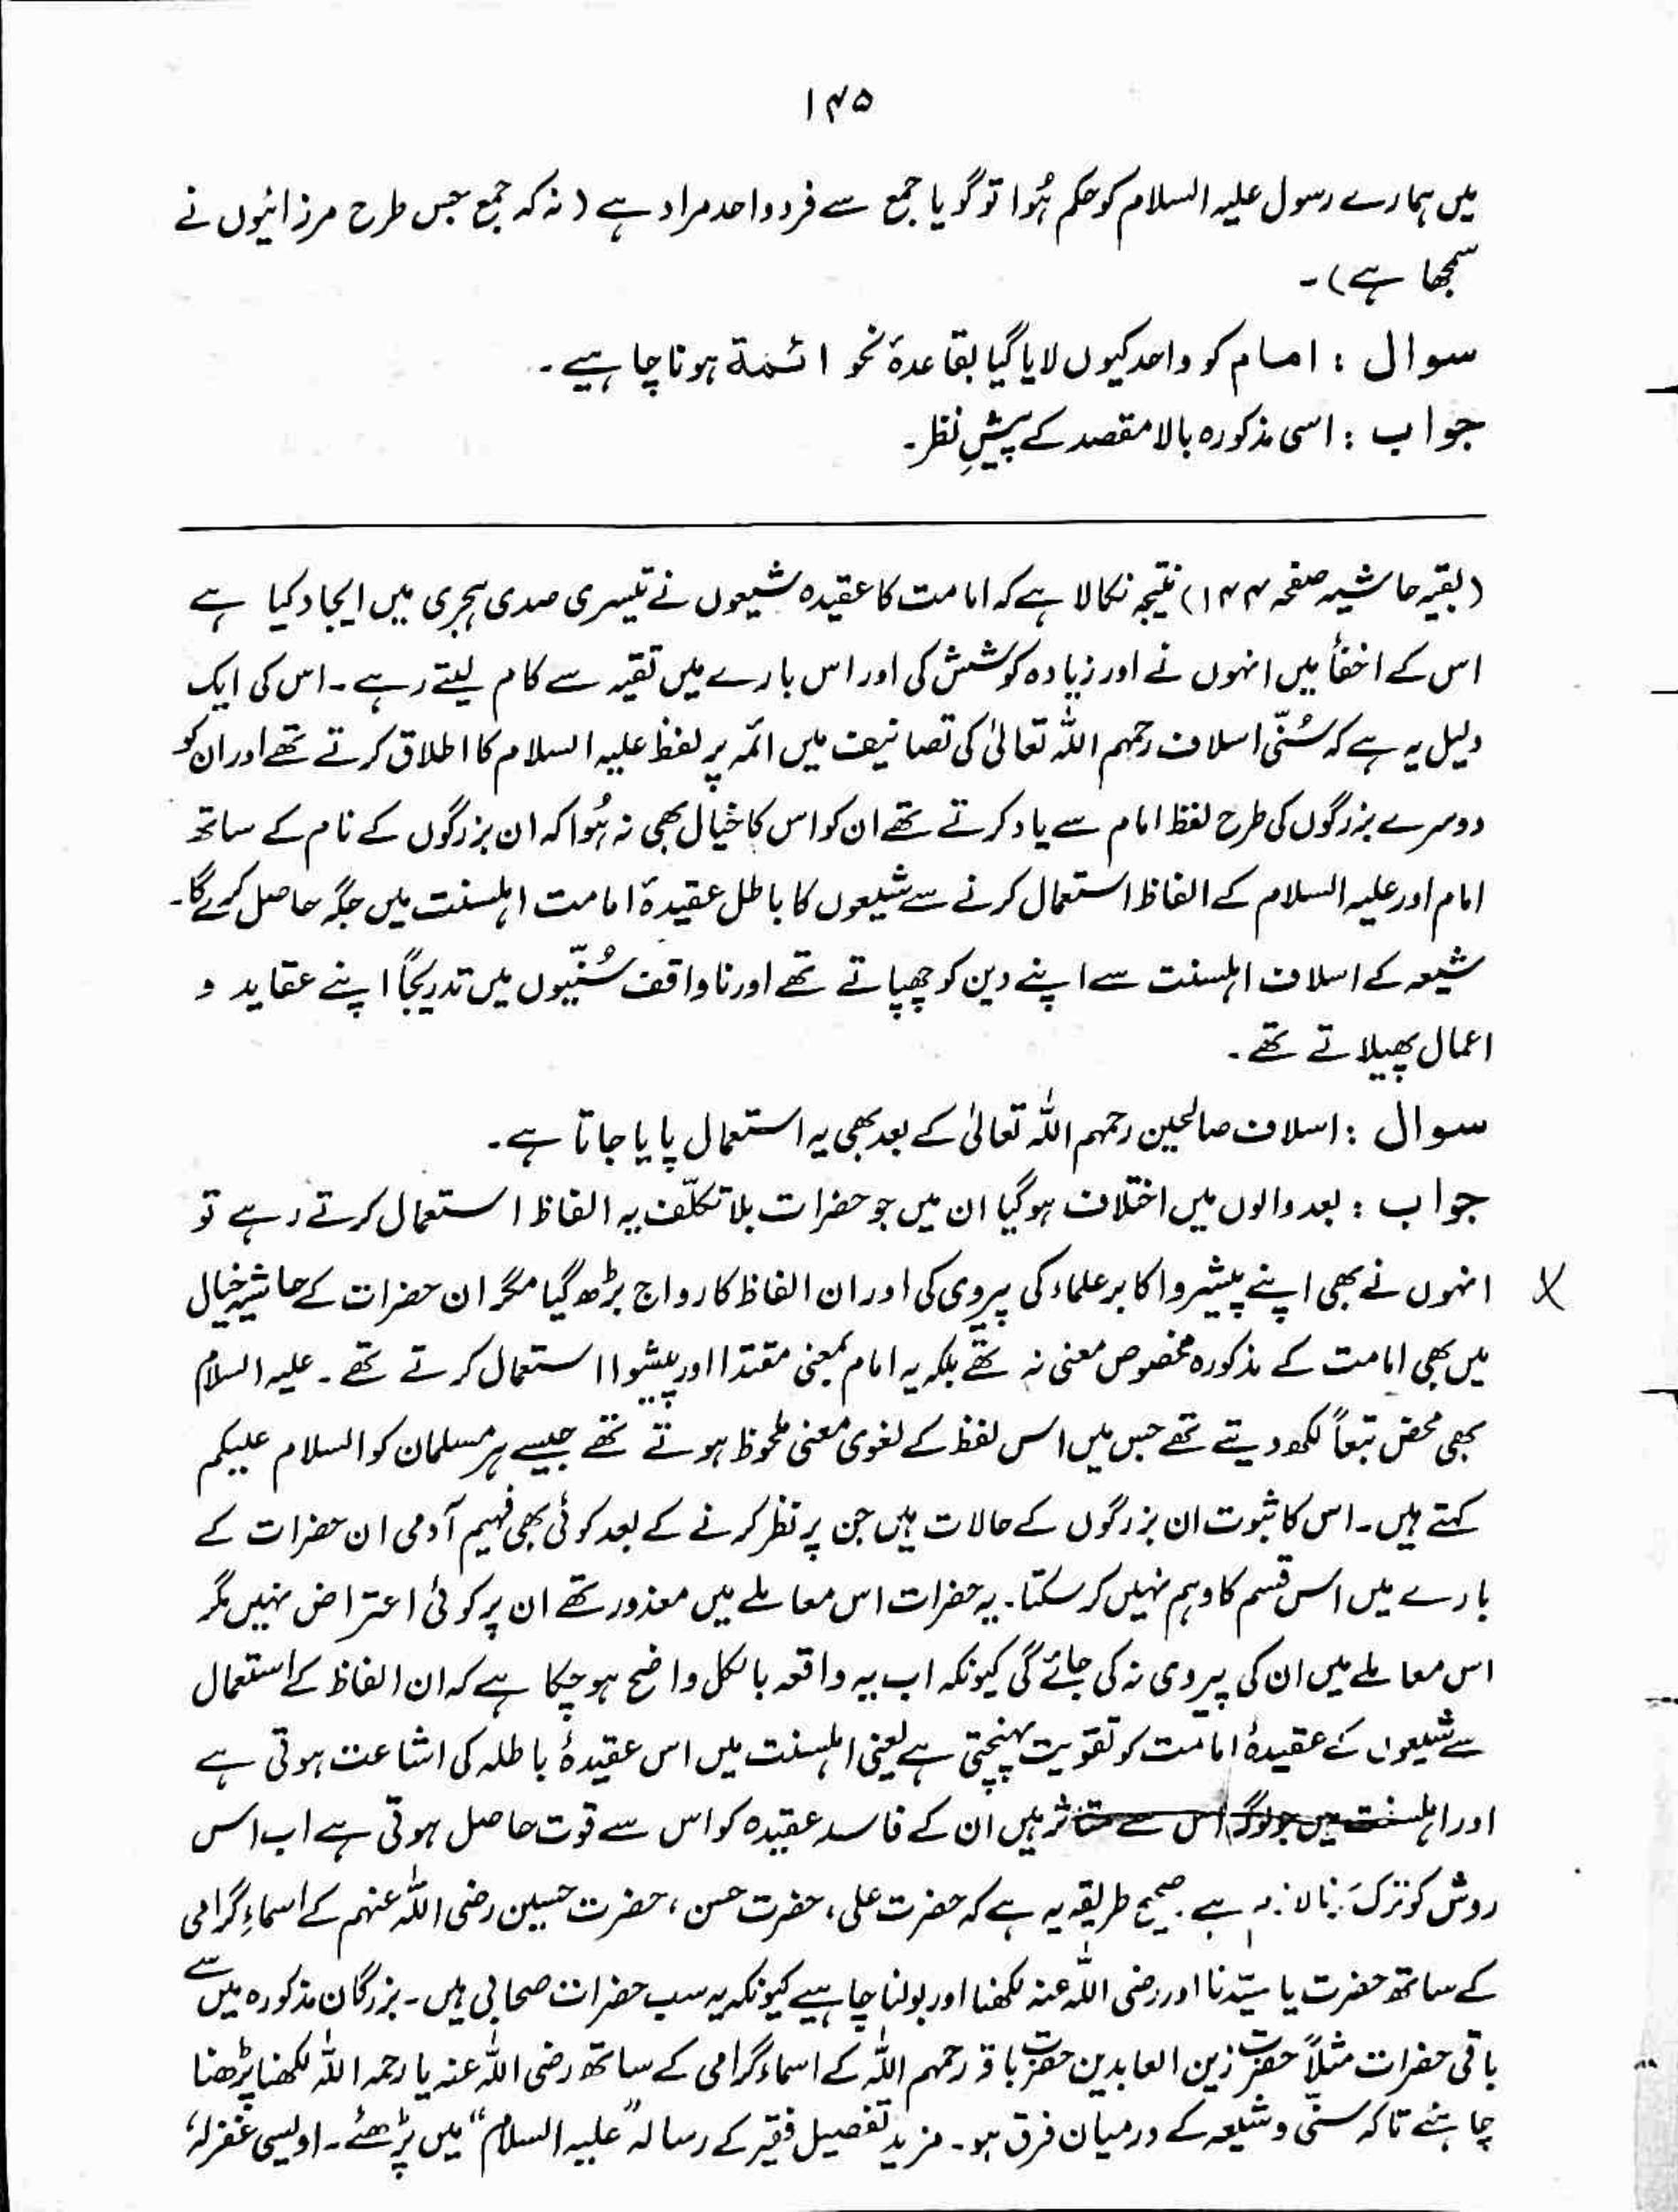 ۱۴۵
میں ہمارے رسول علیہ السلام کو حکم ہُوا تو گویا جمع سے فرد واحد مراد ہے (نہ کہ جمع جس طرح مرزائیوں نے
سمجھا ہے)۔
سوال : امام کو واحد کیوں لایا گیا بقاعدۂ نحو ائمۃ ہونا چاہیے۔
جواب : اسی مذکورہ بالا مقصد کے پیشِ نظر۔
(بقیہ حاشیہ صفحہ ۱۴۴) نتیجہ نکالا ہے کہ امامت کا عقیدہ شیعوں نے تیسری صدی ہجری میں ایجاد کیا ہے
اس کے اخفأ میں انہوں نے اور زیادہ کوشش کی اور اس بارے میں تقیہ سے کام لیتے رہے۔ اس کی ایک
دلیل یہ ہے کہ سُنّی اسلاف رحمہم اللہ تعالیٰ کی تصانیف میں ائمہ پر لفظ علیہ السلام کا اطلاق کرتے تھے اور ان کو
دوسرے بزرگوں کی طرح لفظ امام سے یاد کرتے تھے ان کو اس کا خیال بھی نہ ہُوا کہ ان بزرگوں کے نام کے ساتھ
امام اور علیہ السلام کے الفاظ استعمال کرنے سے شیعوں کا باطل عقیدۂ امامت اہلسنت میں جگہ حاصل کرے گا۔
شیعہ کے اسلاف اہلسنت سے اپنے دین کو چھپاتے تھے اور ناواقف سُنّیوں میں تدریجًا اپنے عقاید و
اعمال پھیلاتے تھے۔
سوال : اسلاف صالحین رحمہم اللہ تعالیٰ کے بعد بھی یہ استعمال پایا جاتا ہے۔
جواب : بعد والوں میں اختلاف ہوگیا ان میں جو حضرات بلا تکلّف یہ الفاظ استعمال کرتے رہے تو
انہوں نے بھی اپنے پیشرو اکابر علماء کی پیروی کی اور ان الفاظ کا رواج بڑھ گیا مگر ان حضرات کے حاشیہ خیال
میں بھی امامت کے مذکورہ مخصوص معنی نہ تھے بلکہ یہ امام بمعنی مقتدا اور پیشوا استعمال کرتے تھے۔ علیہ السلام
بھی محض تبعاً لکھ دیتے تھے جس میں اس لفظ کے لغوی معنی ملحوظ ہوتے تھے جیسے ہر مسلمان کو السلام علیکم
کہتے ہیں۔ اس کا ثبوت ان بزرگوں کے حالات ہیں جن پر نظر کرنے کے بعد کوئی بھی فہیم آدمی ان حضرات کے
بارے میں اس قسم کا وہم نہیں کر سکتا۔ یہ حضرات اس معاملے میں معذور تھے ان پر کوئی اعتراض نہیں مگر
اس معاملے میں ان کی پیروی نہ کی جائے گی کیونکہ اب یہ واقعہ بالکل واضح ہو چکا ہے کہ ان الفاظ کے استعمال
سے شیعوں کے عقیدۂ امامت کو تقویت پہنچتی ہے یعنی اہلسنت میں اس عقیدۂ باطلہ کی اشاعت ہوتی ہے
اور اہلسنت میں جو لوگ اس سے متاثر ہیں ان کے فاسد عقیدہ کو اس سے قوت حاصل ہوتی ہے اب اس
روش کو ترک ہے۔ صحیح طریقہ یہ ہے کہ حضرت علی، حضرت حسن، حضرت حسین رضی اللہ عنہم کے اسماءِ گرامی
کے ساتھ حضرت یا سیّدنا اور رضی اللہ عنہ لکھنا اور بولنا چاہیے کیونکہ یہ سب حضرات صحابی ہیں۔ بزرگان مذکورہ میں سے
باقی حضرات مثلاً حضرت زین العابدین حضرت باقر رحمہم اللہ کے اسماء گرامی کے ساتھ رضی اللہ عنہ یا رحمہ اللہ لکھنا پڑھنا
چاہئے تاکہ سنّی و شیعہ کے درمیان فرق ہو۔ مزید تفصیل فقیر کے رسالہ "علیہ السلام" میں پڑھئے۔ اویسی غفرلہٗ